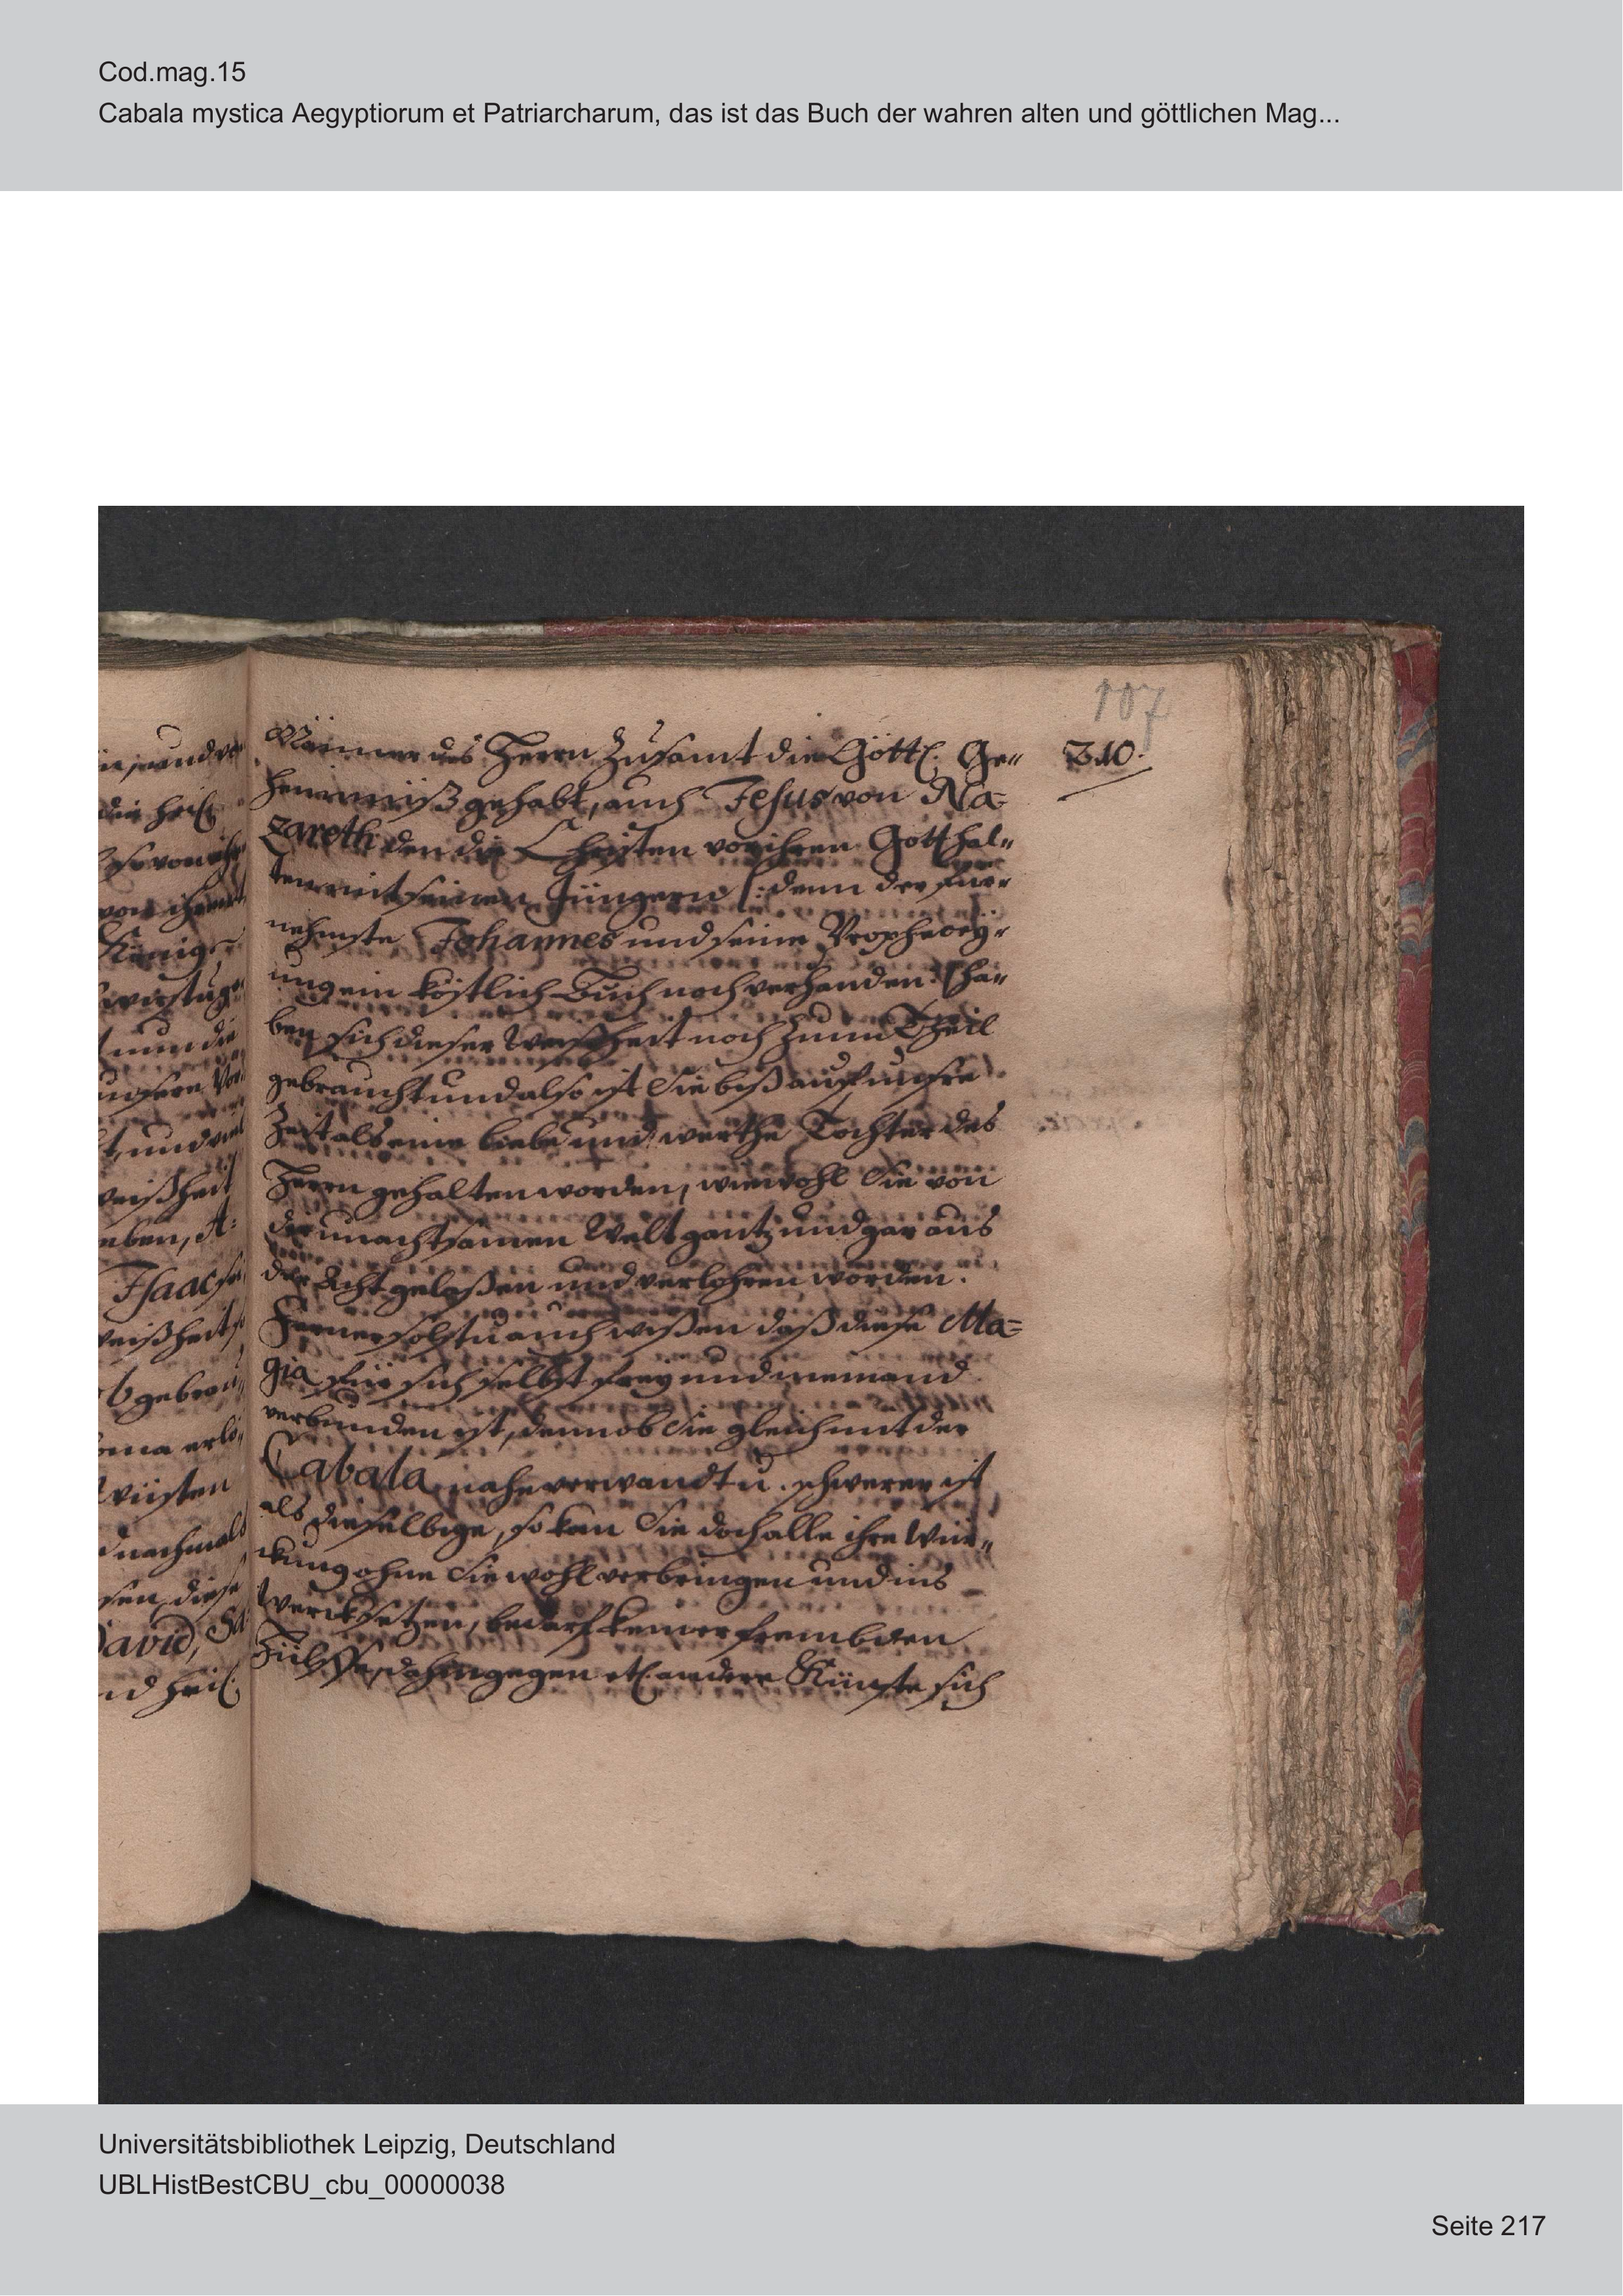 Cod.mag.15
Cabala mystica Aegyptiorum et Patriarcharum, das ist das Buch der wahren alten und göttlichen Mag...
107
310.
Männer des Herrn zusamt die Göttl. Ge-
heimniß gehabt, auch Jesus von Na-
zareth den die Christen vor ihren Gott hal-
ten mit seinen Jüngern /: denn der für-
nehmste Johannes und seine Propheceÿ-
ung ein köstlich Buch noch verhanden :/ ha-
ben sich dieser Weißheit noch zum Theil
gebraucht und also ist Sie biß auff unsre
Zeit als eine liebe und werthe Tochter des
Herrn gehalten worden, wiewohl Sie von
der unachtsamen Welt gantz und gar aus
der Acht gelaßen und verlohren worden.
Ferner solstu auch wißen daß diese Ma-
gia für sich selbst freÿ und niemand
verbunden ist, denn ob Sie gleich mit der
Cabala nahe verwandt u. schwerer ist
als dieselbige, so kan Sie doch alle ihre Wür-
ckung ohne Sie wohl verbringen und ins
Werck setzen, bedarf keiner frembden
Hülffe, dahingegen etl. andere Künste sich
die heil.
von ihren
König
nun die
unsere
und
weißheit
eben, A-
Isaac
Weißheit
gebrau-
erlö-
Wüsten
nachmals
diese
David, Sa-
heil.
Universitätsbibliothek Leipzig, Deutschland
UBLHistBestCBU_cbu_00000038
Seite 217